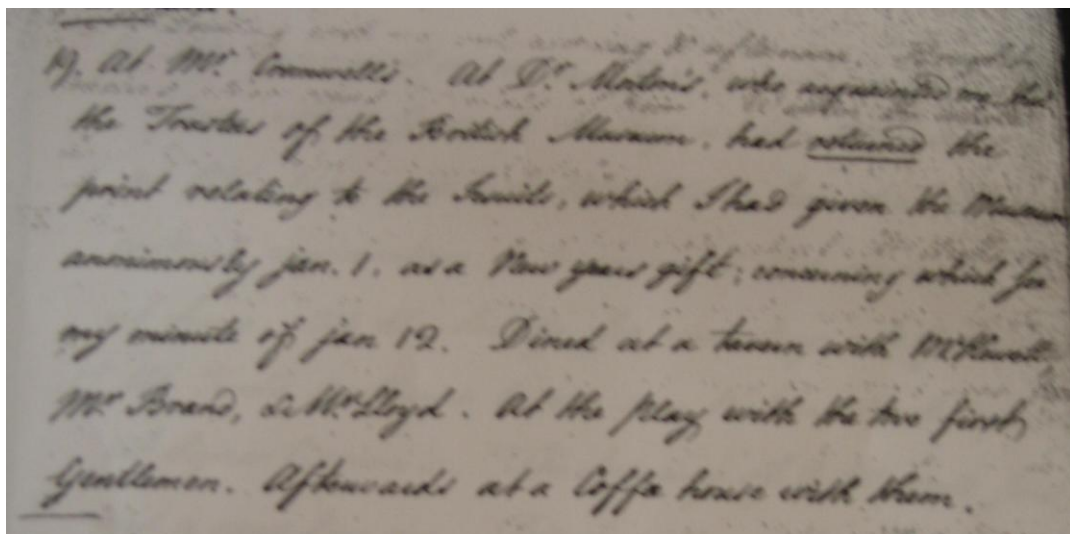 19. At Mr. Cromwell's. At Dr. Morton's, who acquainted me that
the Trustees of the British Museum, had returned the
print relating to the Jesuits, which I had given the Museum
annonimously jan. 1. as a New years gift; concerning which see
my minute of jan 12. Dined at a tavern with Mr
Mr Brand, & Mr Lloyd. At the play with the two first
Gentlemen. Afterwards at a Coffe house with them.